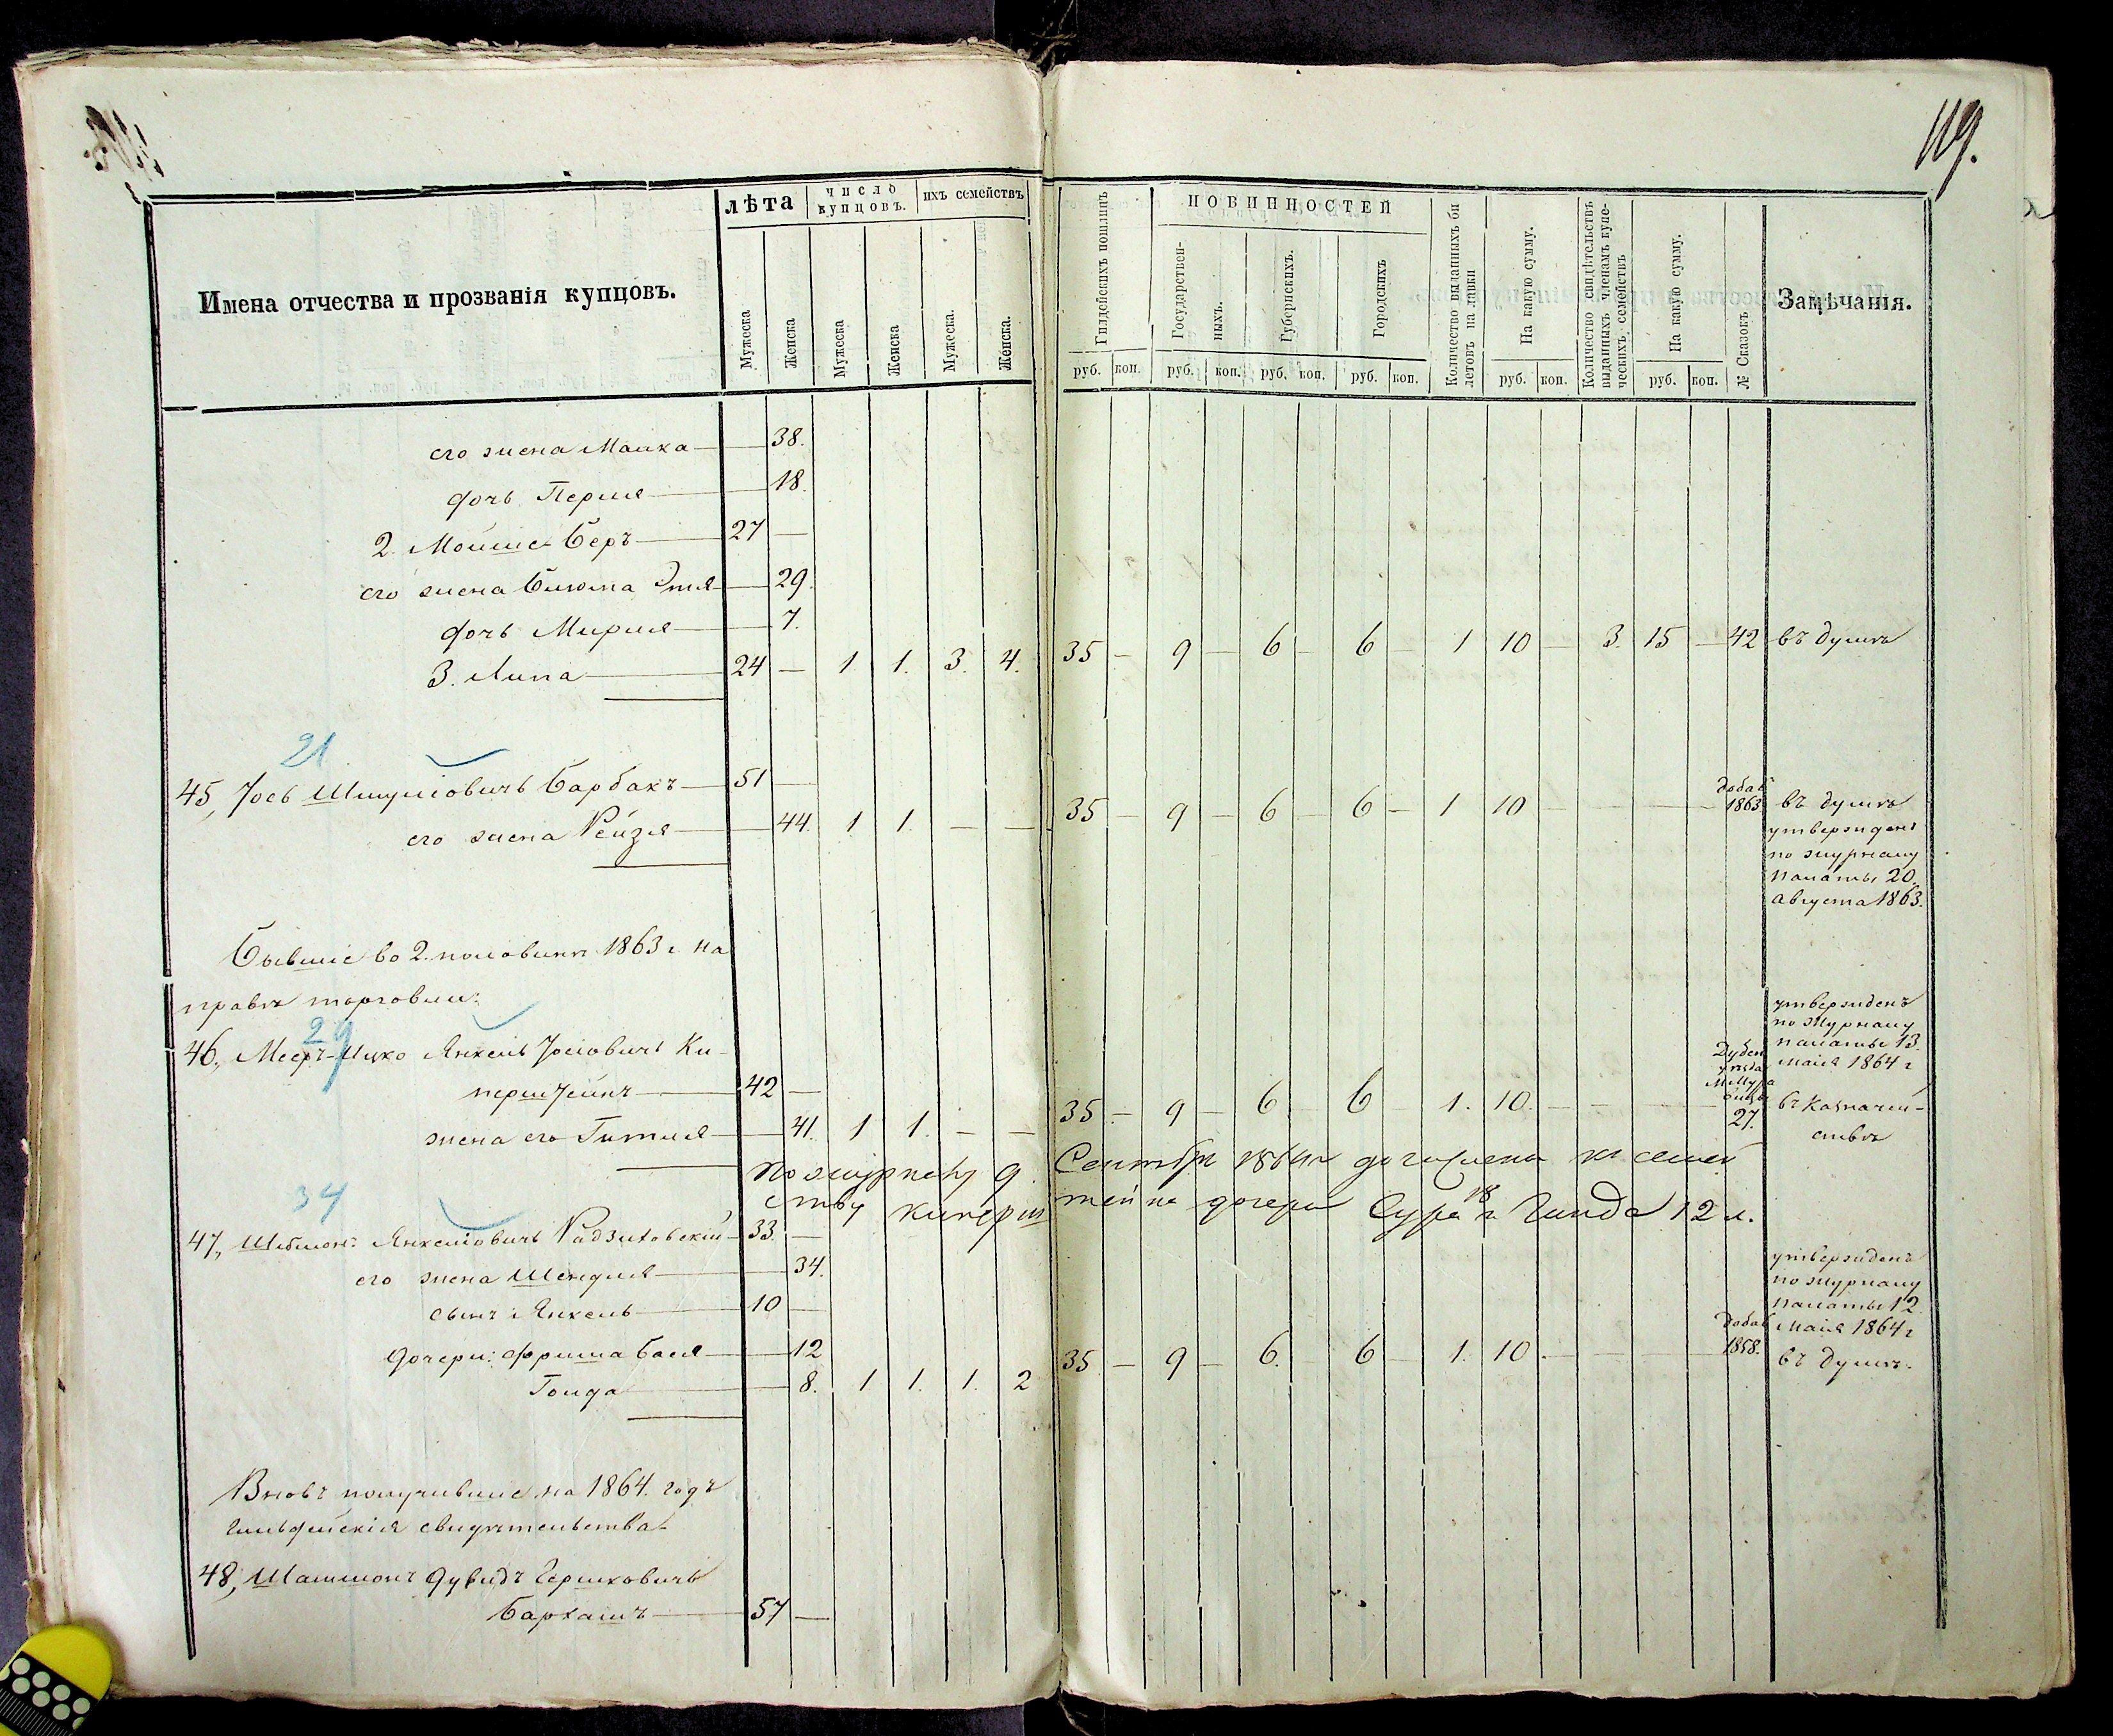 119.
Имена отчества и прозванія купцовъ.
лѣта
число купцовъ.
ихъ семействъ
Мужеска
Женска
Мужеска
Женска
Мужеска.
Женска.
Гилдейскихъ пошлинъ
ПОВИННОСТЕЙ
Государствен-
ныхъ.
Губернскихъ.
Городскихъ
Количество выданныхъ би
летовъ на лавки
На какую сумму.
Количество свидѣтельствъ
выданныхъ членамъ купе-
ческихъ семействъ
На какую сумму.
№ Сказокъ
Замѣчанія.
руб. коп. руб. коп. руб. коп. руб. коп. руб. коп. руб. коп.
его жена Малка — 38.
дочь Перля — 18.
2. Мойше-Беръ — 27 —
его жена Блюма Этля — 29.
дочь Мирля — 7.
3. Липа — 24 — 1 1. 3. 4. 35 — 9 — 6 — 6 — 1 10 — 3. 15 — 42 въ думѣ
21
45, Іось Шмуліовичъ Барбакъ — 51 —
его жена Рейзя — 44. 1 1. — — 35 — 9 — 6 — 6 — 1 10 — — — — добав 1863 въ думѣ
утвержденъ
по журналу
палаты 20.
августа 1863.
Бывшіе во 2. половинѣ 1863 г на
правѣ торговли:
29
46, Мееръ-Ицко Янкель Іосіовичъ Ки-
перштейнъ — 42 —
жена его Гитля — 41. 1 1. — — 35. — 9 — 6 — 6 — 1. 10. — — — — 27.
утвержденъ
по журналу
палаты 13.
маія 1864 г
въ Казначей-
ствѣ
по журналу 9 Сентября 1864 г дочислена къ семей
ству киперш тейна дочери Сура 18 и Гинда 12 л.
34
47, Шлёмонъ Янкеліовичъ Радзиховскій — 33. —
его жена Шендля — 34.
сынъ Янкель — 10 —
дочери: Фрима Бася — 12
Голда — 8. 1 1. 1. 2 35 — 9 — 6. 6 — 1. 10. — — — — добав 1858.
утвержденъ
по журналу
палаты 12.
маія 1864 г
въ думѣ.
Вновь получившіе на 1864. годъ
гильдейскія свидѣтельства
48, Шашмонъ Дувидъ Гершковичъ
Бархашъ — 57 —